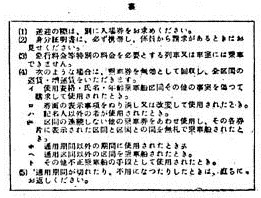 裏
(1) 送迎の際は、別に入場券をお求めください。
(2) 身分証明書は、必ず携帯し、係員から請求があるときはお
見せください。
(3) 急行料金等特別の料金を必要とする列車又は車室には乗車
できません。
(4) 次のような場合は、乗車券を無効として回収し、全区間の
運賃・増運賃をいただきます。
イ 使用資格・氏名・年齢
事実を偽つて
購求して使用されたとき。
ロ 券面の表示事項をぬり消し又は改変して使用されたとき。
ハ 記名人以外の者が使用されたとき。
ニ 区間の連続しない他の乗車券をあわせ使用し、その各券
片に表示された区間と区間との間を無札で乗車船されたと
き。
ホ 通用期間以外の期間に使用されたとき。
ヘ 通用区間以外の区間を乗車船されたとき。
ト その他不正乗車船の手段として使用されたとき。
(5) 通用期間が切れたり、不用になつたりしたときは、直ちに
お返しください。